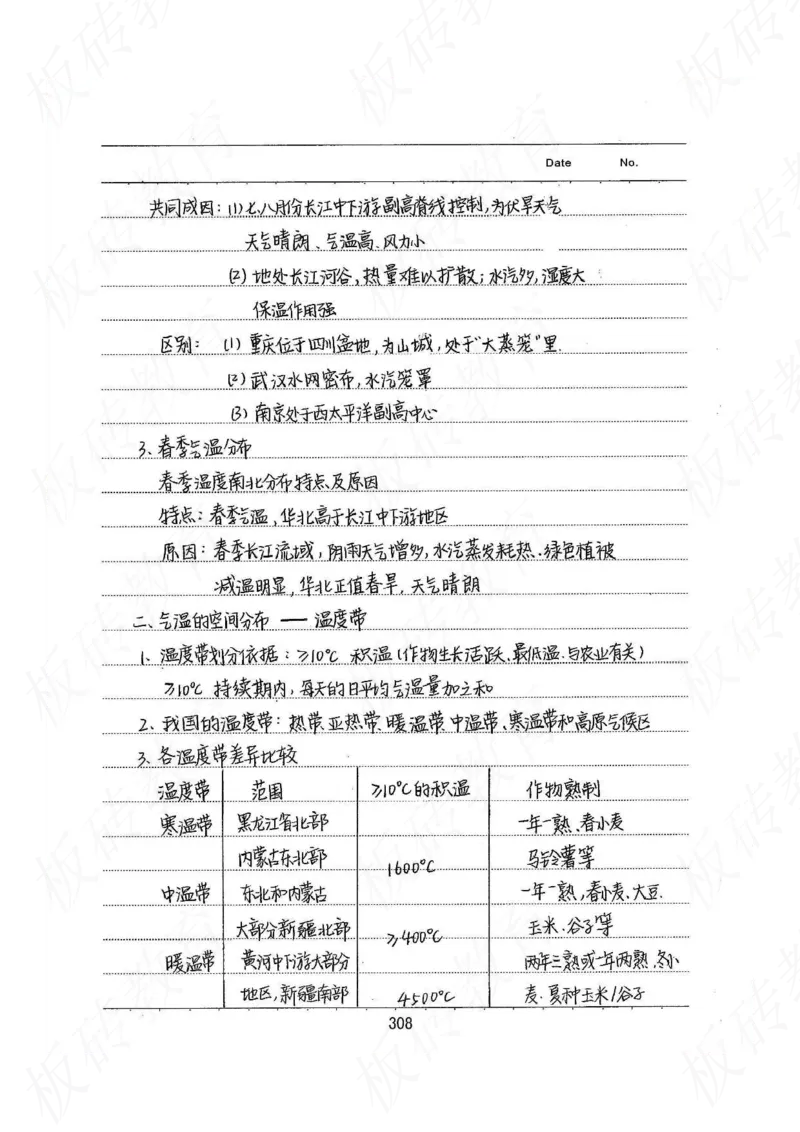 Date No.
共同成因：(1)七、八月份长江中下游副高脊线控制，为伏旱天气
天气晴朗、气温高、风力小
(2) 地处长江河谷，热量难以扩散；水汽多，湿度大
保温作用强
区别： (1) 重庆位于四川盆地，为山城，处于"大蒸笼"里.
(2) 武汉水网密布，水汽笼罩
(3) 南京处于西太平洋副高中心
3、春季气温分布
春季温度南北分布特点及原因
特点：春季气温，华北高于长江中下游地区
原因：春季长江流域，阴雨天气增多，水汽蒸发耗热、绿色植被
减温明显，华北正值春旱，天气晴朗
二、气温的空间分布 —— 温度带
1、温度带划分依据：≥10℃ 积温（作物生长活跃、最低温、与农业有关）
≥10℃ 持续期内，每天的日平均气温量加之和
2、我国的温度带：热带、亚热带、暖温带、中温带、寒温带和高原气候区
3、各温度带差异比较
温度带 范围 ≥10℃的积温 作物熟制
寒温带 黑龙江省北部 一年一熟、春小麦
内蒙古东北部 1600℃ 马铃薯等
中温带 东北和内蒙古 一年一熟，春小麦、大豆.
大部分新疆北部 ≥400℃ 玉米、谷子等
暖温带 黄河中下游大部分 两年三熟或一年两熟、冬小
地区，新疆南部 4500℃ 麦、夏种玉米/谷子
308
板砖教育